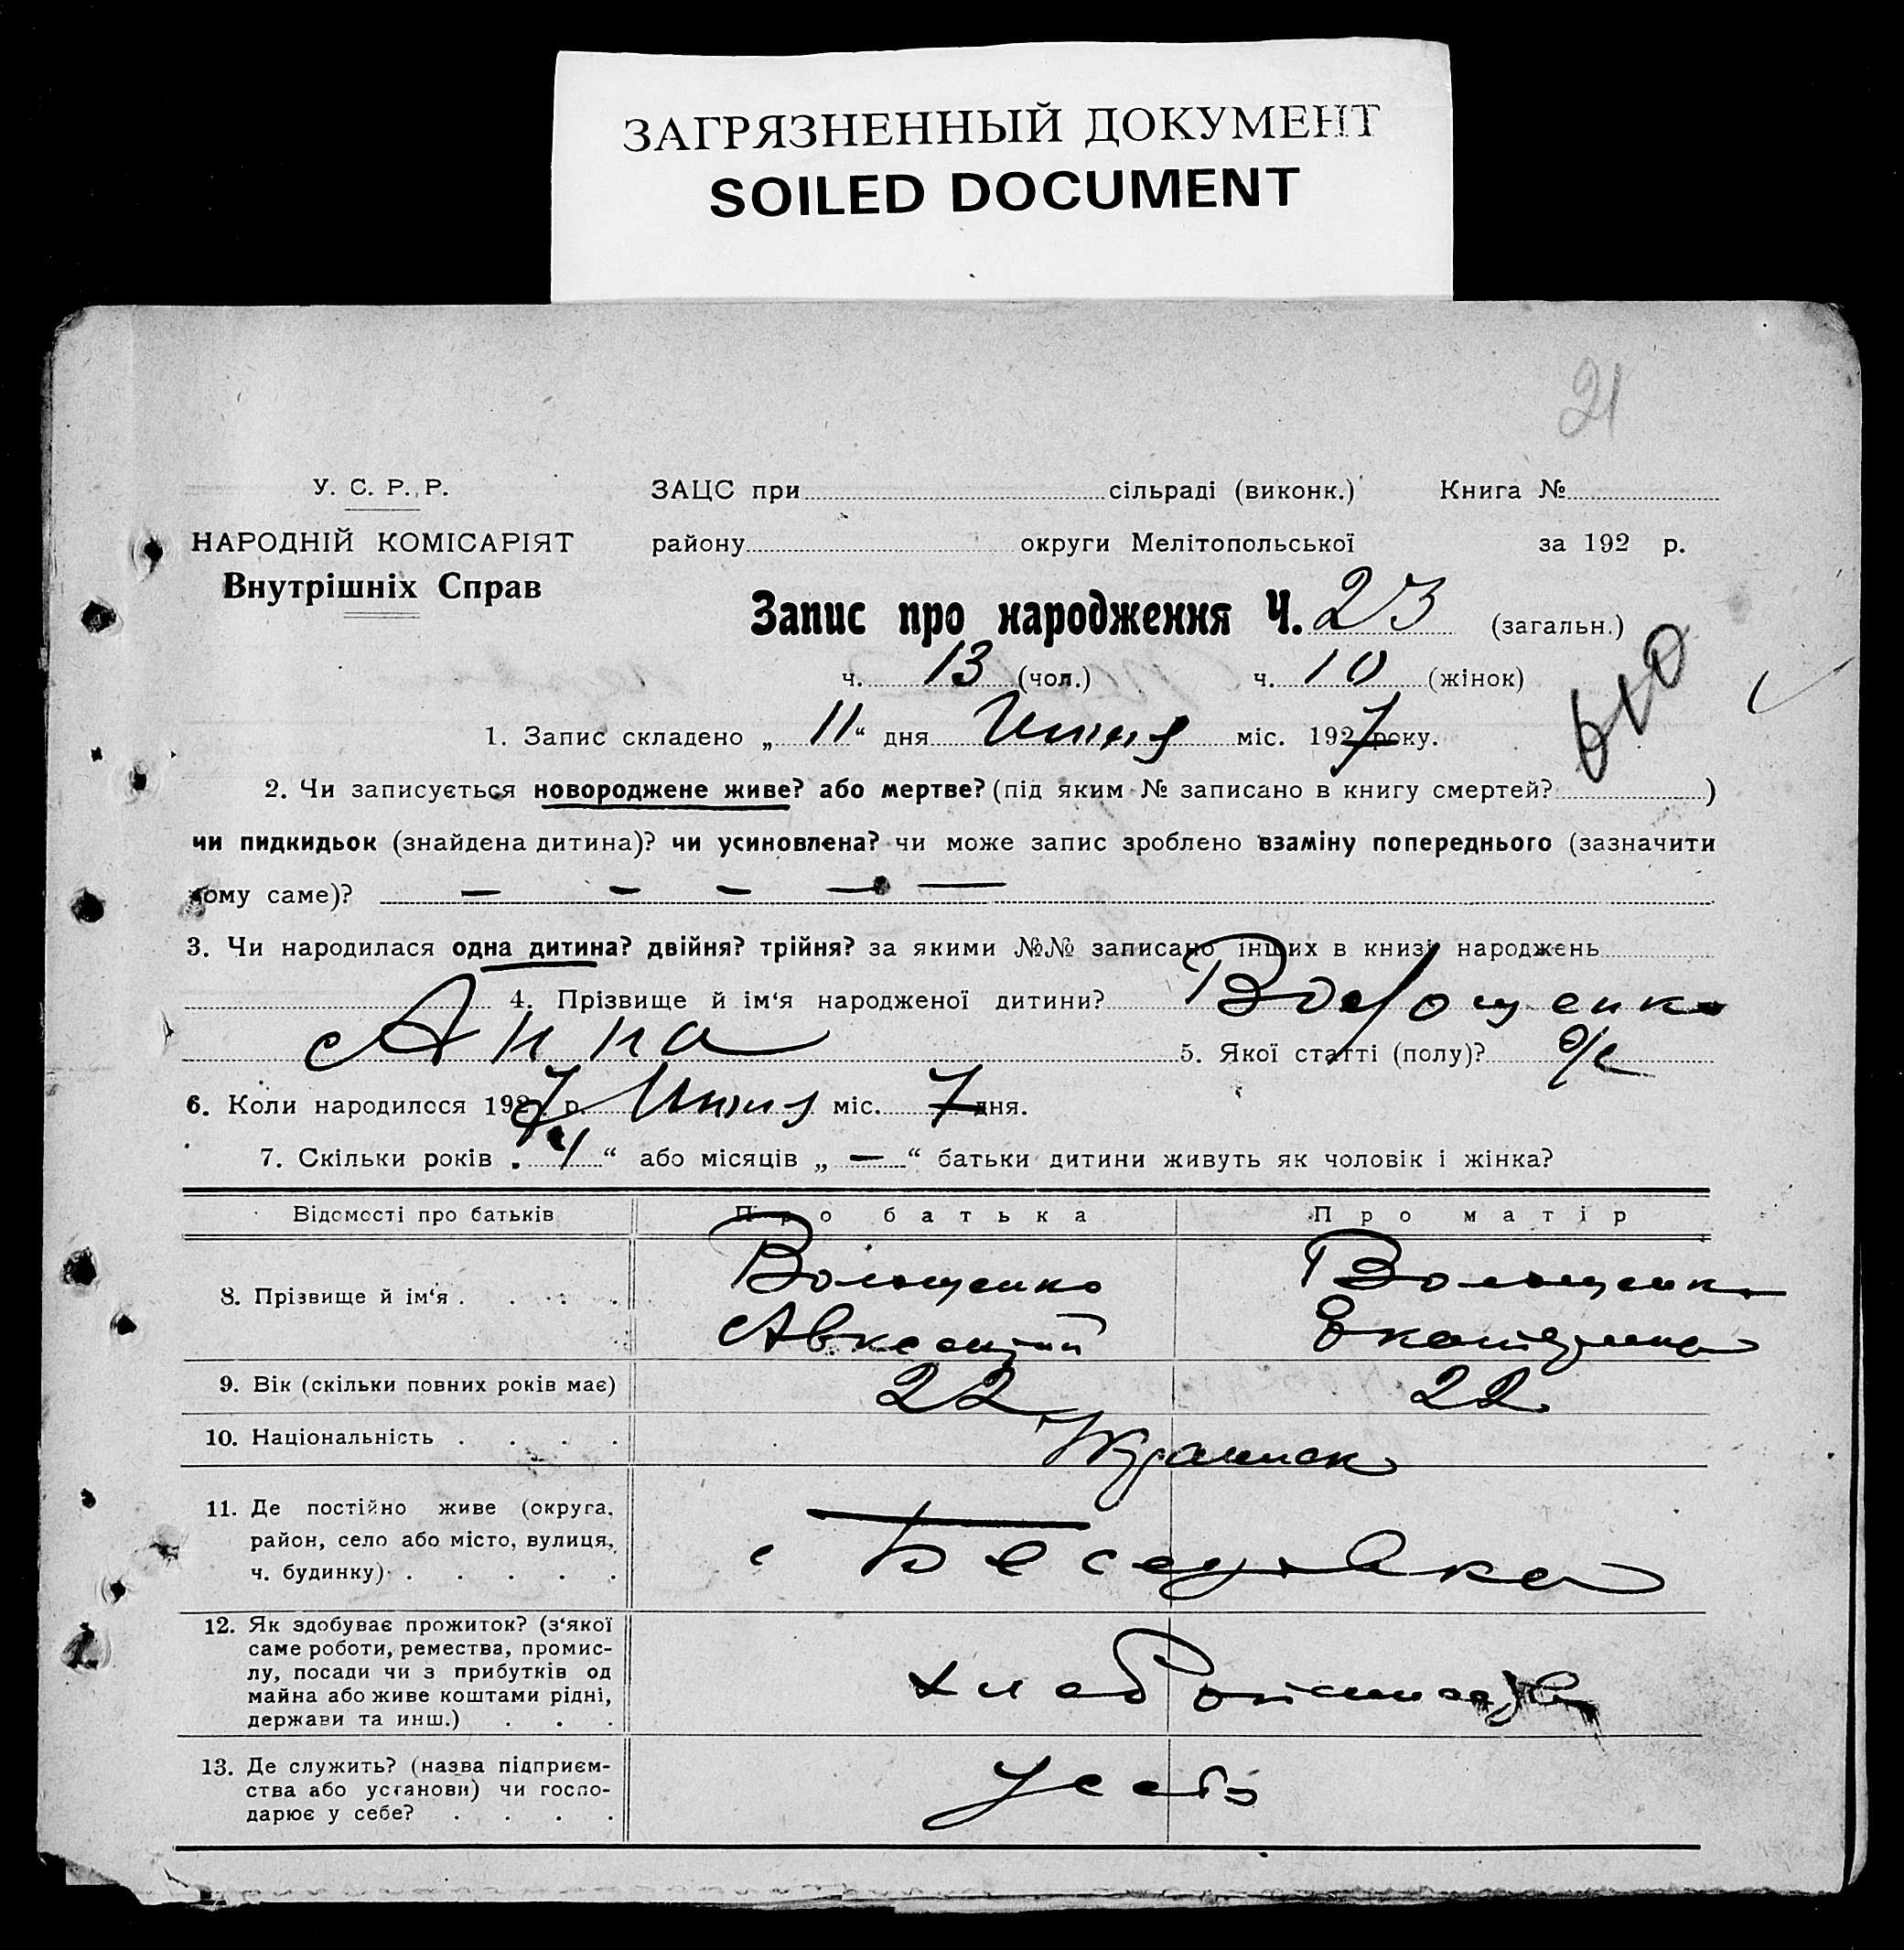 ЗАГРЯЗНЕННЫЙ ДОКУМЕНТ
SOILED DOCUMENT
21
У. С. Р. Р.
НАРОДНІЙ КОМІСАРІЯТ
Внутрішніх Справ
ЗАЦС при сільраді (виконк.) Книга №
району округи Мелітопольської за 192 р.
Запис про народження Ч. 23 (загальн.)
ч. 13 (чол.) ч. 10 (жінок)
1. Запис складено „ 11 “ дня міс. 1927 року.
2. Чи записується новороджене живе? або мертве? (під яким № записано в книгу смертей? )
чи пидкидьок (знайдена дитина)? чи усиновлена? чи може запис зроблено взаміну попереднього (зазначити
кому саме)? — — — — —
3. Чи народилася одна дитина? двійня? трійня? за якими №№ записано інших в книзі народжень
4. Прізвище й ім‘я народженої дитини?
Анна 5. Якої статті (полу)?
6. Коли народилося 1927 р. міс. 7 дня.
7. Скільки років „ “ або місяців „ — “ батьки дитини живуть як чоловік і жінка?
Відомості про батьків Про батька Про матір
8. Прізвище й ім‘я . . . . . Волощенко Волощенко
Авксентий Екатерина
9. Вік (скільки повних років має) 22 22
10. Національність . . . . Украинск
11. Де постійно живе (округа,
район, село або місто, вулиця,
ч. будинку) . . . . . с
12. Як здобуває прожиток? (з‘якої
саме роботи, ремества, промис-
лу, посади чи з прибутків од
майна або живе коштами рідні,
держави та инш.) . . .
13. Де служить? (назва підприєм-
ства або установи) чи госпо-
дарює у себе? . . . . у себе